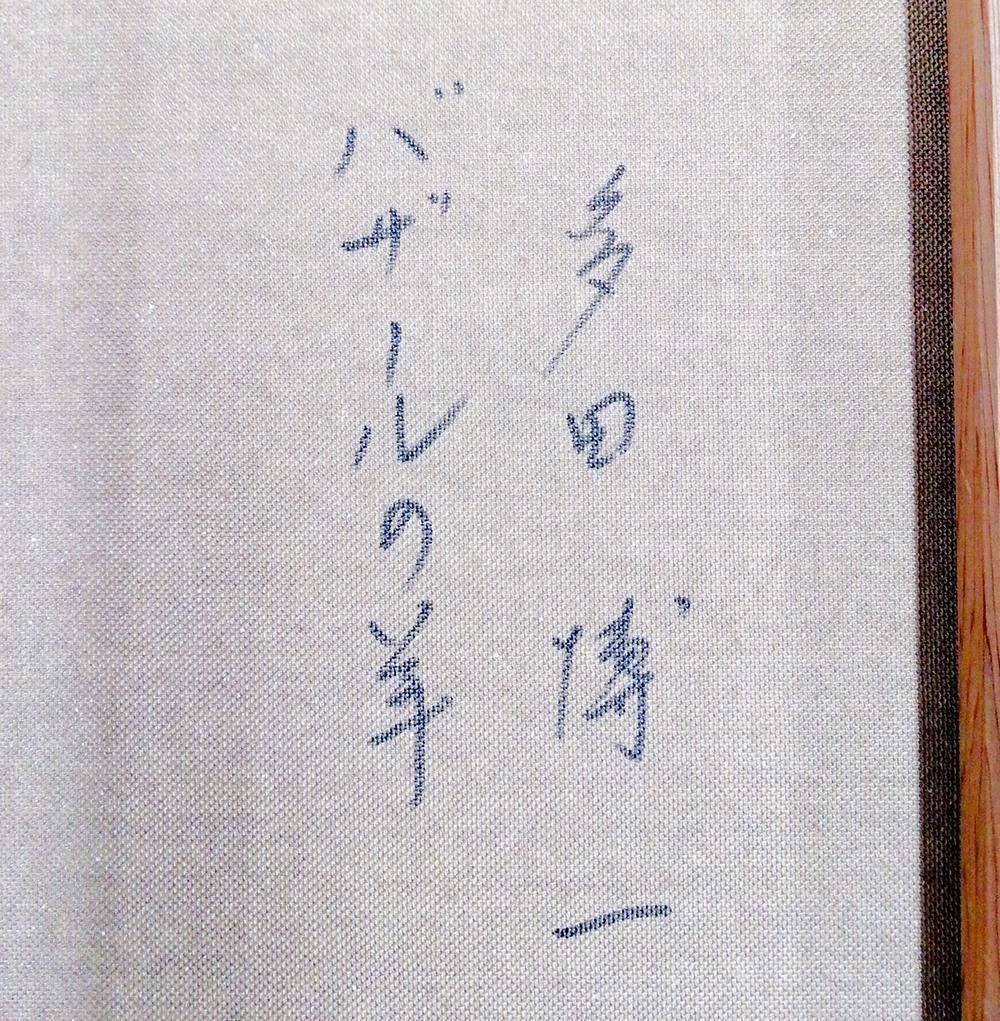 多田博一
バザールの羊